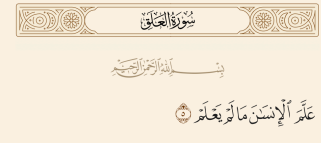 سُورَةُ العَلَقِ
بِسْمِ ٱللَّهِ ٱلرَّحْمَٰنِ ٱلرَّحِيمِ
عَلَّمَ ٱلْإِنسَٰنَ مَا لَمْ يَعْلَمْ ٥